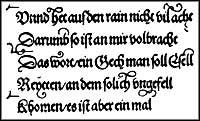 Vnnd het auf den rain nicht vil acht
Darumb so ist an mir volbracht
Das wort / ein Gech man soll Esell
Reytten / an dem solich vngefell
Khomen / es ist aber ein mal